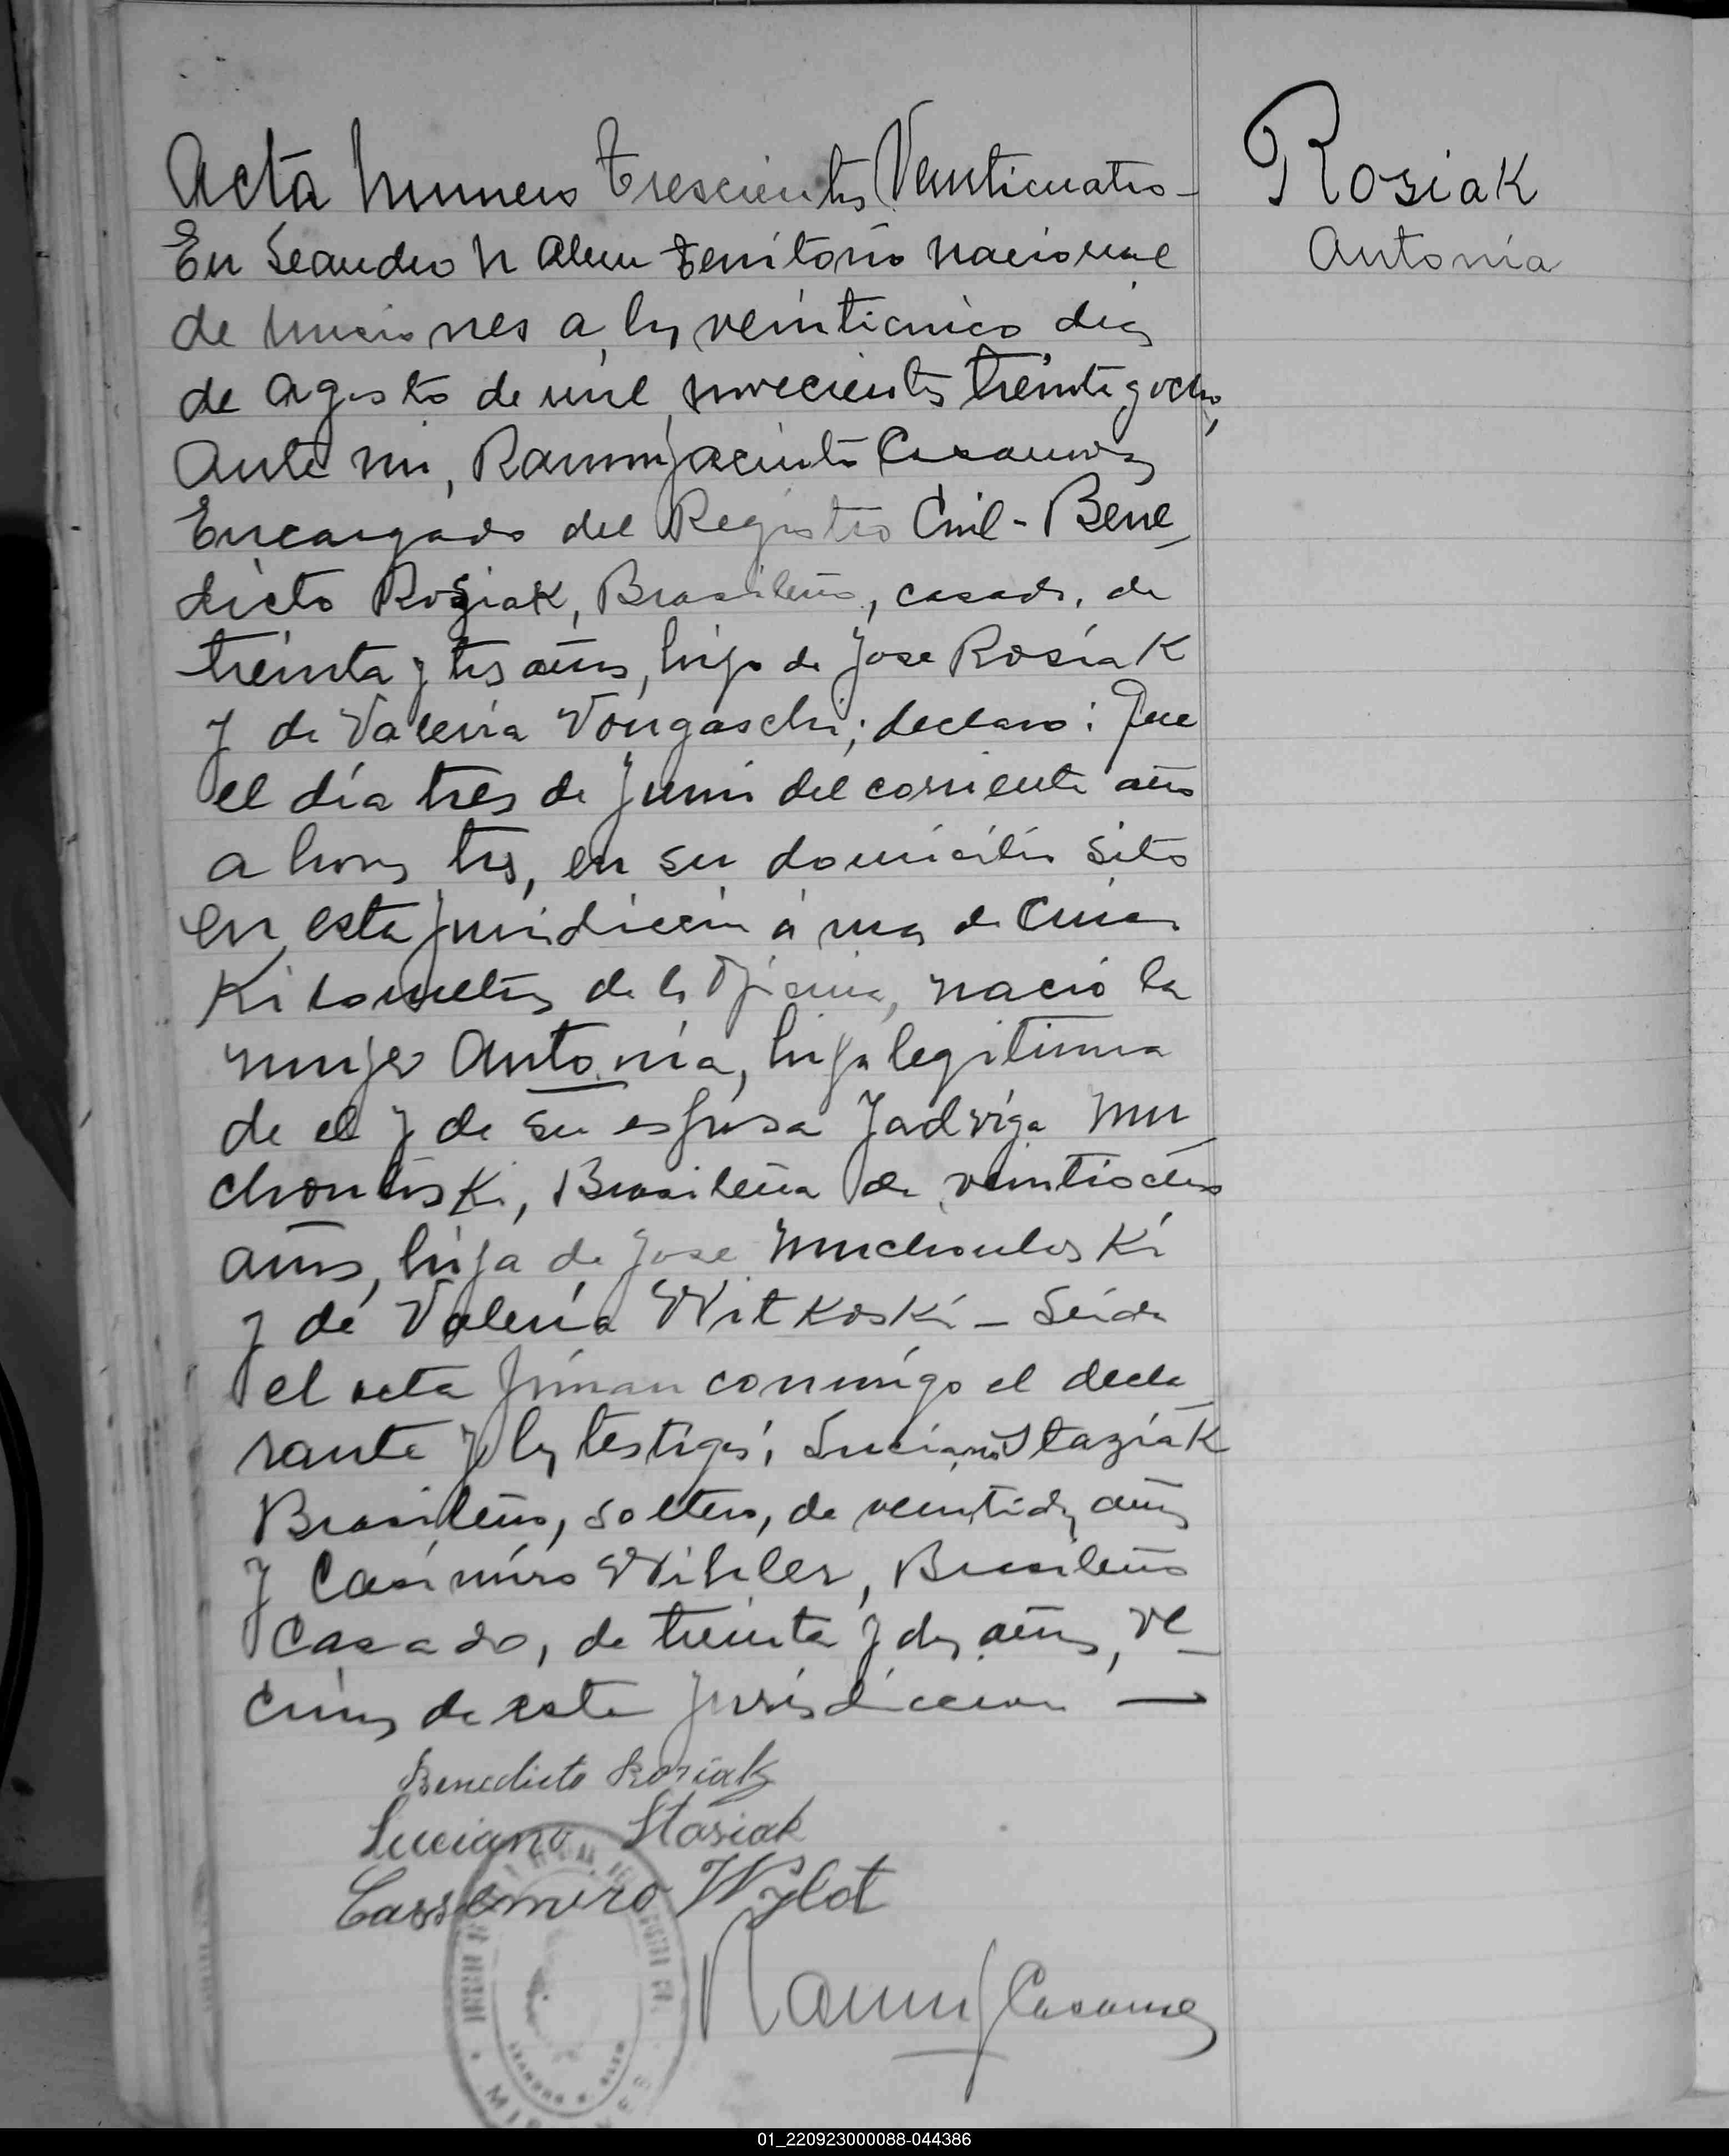 Acta numero trescientos Veinticuatro -
Rosiak
Antonia
En Leandro N Alem territorio nacional
de misiones a los veinticinco dias
de agosto de mil novecientos treinta y ocho,
ante mi, Ramon Jacinto Casanova
Encargado del Registro Civil - Bene
dicto Rosiak, Brasileño, casado, de
treinta y tres años, hijo de Jose Rosiak
y de Valeria Vongaschi; declaro: Que
el día tres de Junio del corriente año
a horas tres, en su domicilio sito
en esta jurisdiccion a mas de cinco
Kilometros de la Oficina, nació la
mujer Antonia, hija legitima
de el y de su esposa Jadviga Mu
chonloski, Brasileña de veintiocho
años, hija de Jose Muchouloski
y de Valeria Witkoski - Leida
el acta firman conmigo el decla
rante y los testigos; Luciano Staziak
Brasileño, soltero, de veintidos años
y Casimiro Wihler, Brasileño
casado, de treinta y dos años, ve_
cinos de esta jurisdiccion —
Benedicto Rosiak
Luciano Stasiak
Cassemiro Wylot
Ramon J Casanova
LEANDRO N. ALEM
01_220923000088-044386